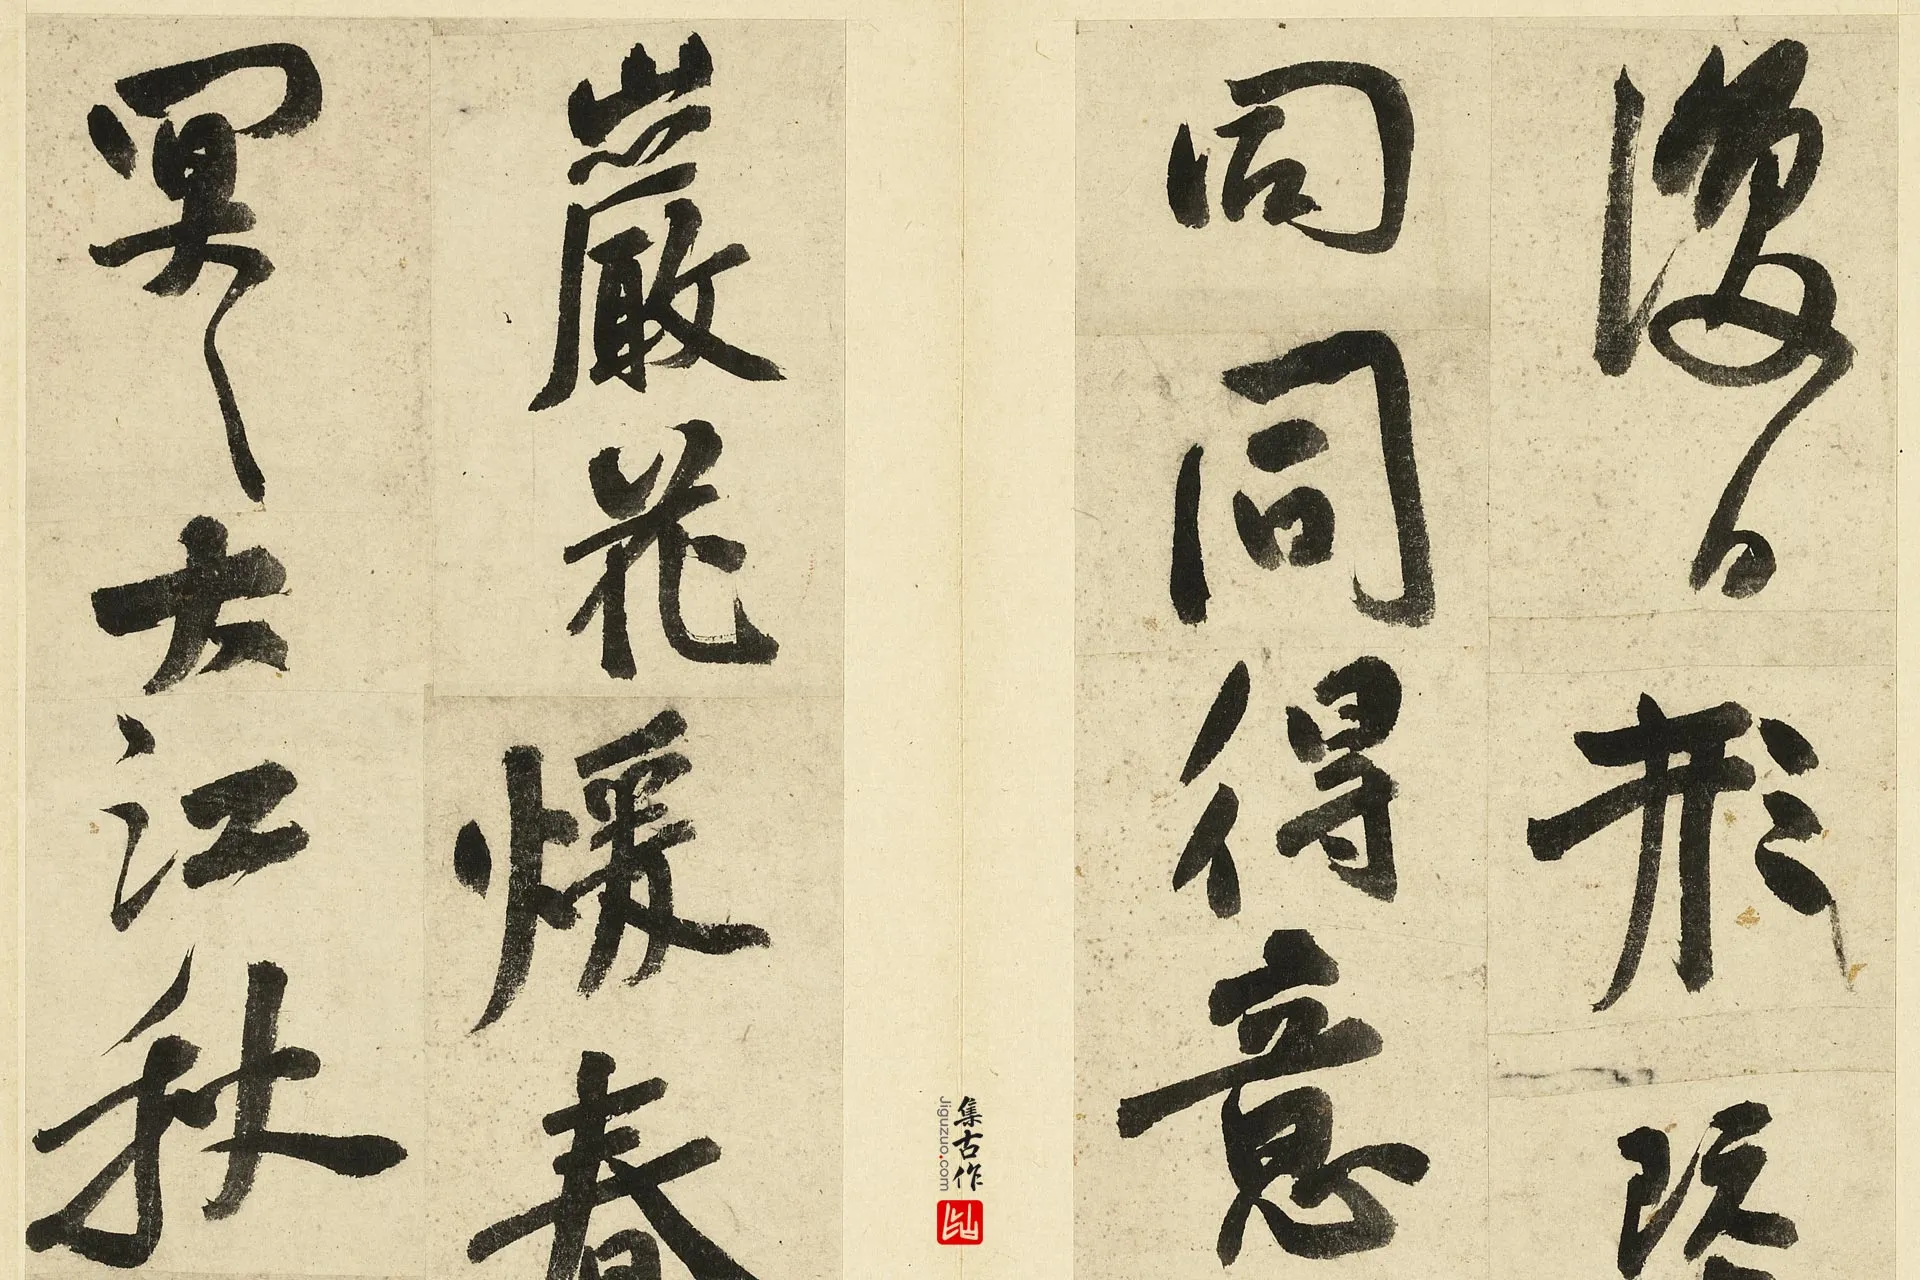 復日形既
同同得意
巖花暖春
冥〻大江秋
集古作
Jiguzuo.com